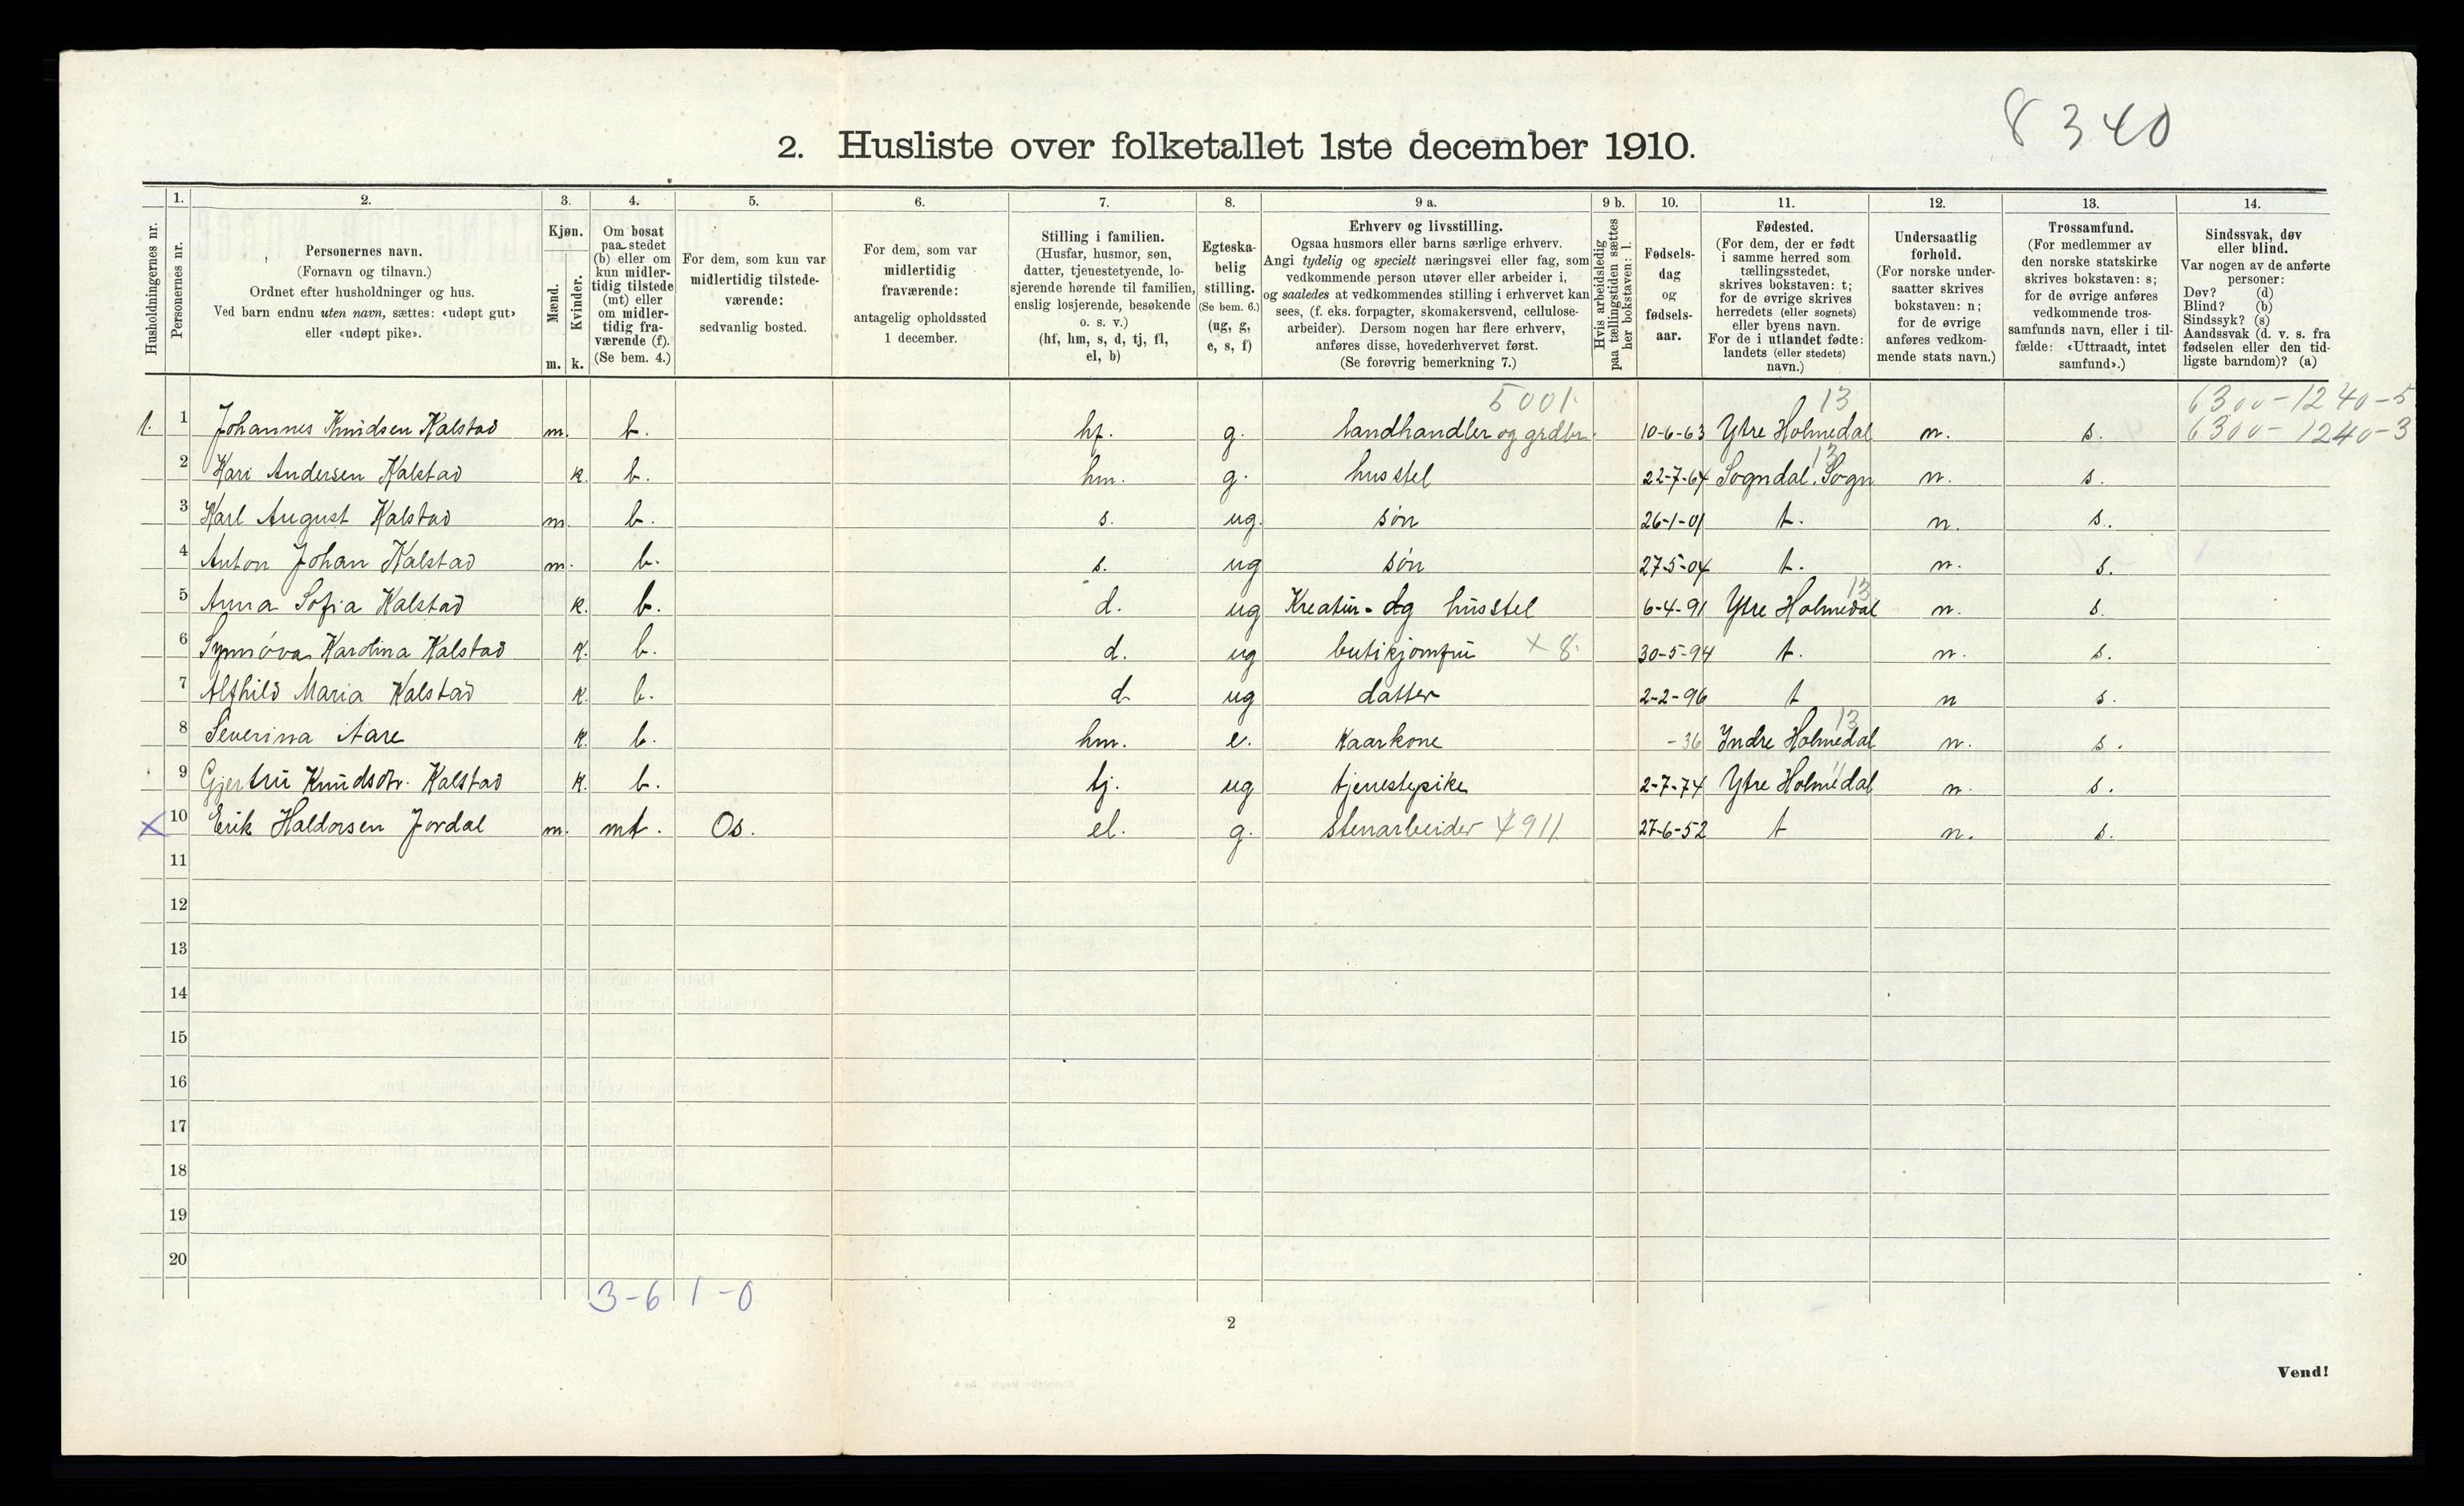 8340
2. Husliste over folketallet 1ste december 1910.
Husholdningernes nr.
1.
Personernes nr.
2.
Personernes navn.
(Fornavn og tilnavn.)
Ordnet efter husholdninger og hus.
Ved barn endnu uten navn, sættes: «udøpt gut»
eller «udøpt pike».
3.
Kjøn.
Mænd.
Kvinder.
m. k.
4.
Om bosat
paa stedet
(b) eller om
kun midler-
tidig tilstede
(mt) eller
om midler-
tidig fra-
værende (f).
(Se bem. 4.)
5.
For dem, som kun var
midlertidig tilstede-
værende:
sedvanlig bosted.
6.
For dem, som var
midlertidig
fraværende:
antagelig opholdssted
1 december.
7.
Stilling i familien.
(Husfar, husmor, søn,
datter, tjenestetyende, lo-
sjerende hørende til familien,
enslig losjerende, besøkende
o. s. v.)
(hf, hm, s, d, tj, fl,
el, b)
8.
Egteska-
belig
stilling.
(Se bem. 6.)
(ug, g,
e, s, f)
9 a.
Erhverv og livsstilling.
Ogsaa husmors eller barns særlige erhverv.
Angi tydelig og specielt næringsvei eller fag, som
vedkommende person utøver eller arbeider i,
og saaledes at vedkommendes stilling i erhvervet kan
sees, (f. eks. forpagter, skomakersvend, cellulose-
arbeider). Dersom nogen har flere erhverv,
anføres disse, hovederhvervet først.
(Se forøvrig bemerkning 7.)
9 b.
Hvis arbeidsledig
paa tællingstiden sættes
her bokstaven: l.
10.
Fødsels-
dag
og
fødsels-
aar.
11.
Fødested.
(For dem, der er født
i samme herred som
tællingsstedet,
skrives bokstaven: t;
for de øvrige skrives
herredets (eller sognets)
eller byens navn.
For de i utlandet fødte:
landets (eller stedets)
navn.)
12.
Undersaatlig
forhold.
(For norske under-
saatter skrives
bokstaven: n;
for de øvrige
anføres vedkom-
mende stats navn.)
13.
Trossamfund.
(For medlemmer av
den norske statskirke
skrives bokstaven: s;
for de øvrige anføres
vedkommende tros-
samfunds navn, eller i til-
fælde: «Uttraadt, intet
samfund».)
14.
Sindssvak, døv
eller blind.
Var nogen av de anførte
personer:
Døv? (d)
Blind? (b)
Sindssyk? (s)
Aandssvak (d. v. s. fra
fødselen eller den tid-
ligste barndom)? (a)
5001. 13 6300-1240-5
1. 1 Johannes Knudsen Kalstad m. b. hf. g. landhandler og grdbr. 10-6-63 Ytre Holmedal n. s. 6300-1240-3
13
2 Kari Andersen Kalstad k. b. hm. g. husstel 22-7-64 Sogndal, Sogn n. s.
3 Karl August Kalstad m b. s. ug. søn 26-1-01 t. n. s.
4 Anton Johan Kalstad m. b. s. ug søn 27-5-04 t. n. s.
13
5 Anna Sofia Kalstad k. b. d. ug Kreatur- og husstel 6-4-91 Ytre Holmedal n. s.
6 Synnöva Karolina Kalstad k. b. d. ug butikjomfru × 8. 30-5-94 t. n. s.
7 Alfhild Maria Kalstad k. b. d ug datter 2-2-96 t n s.
13
8 Severina Aare k. b. hm. e. Kaarkone -36 Indre Holmedal n. s.
9 Gjertru Knudsdtr. Kalstad k. b. tj. ug tjenestepike 2-7-74 Ytre Holmedal n. s.
× 10 Erik Haldorsen Jordal m. mt. Os. el. g. stenarbeider 4911 27-6-52 t n. s.
11
12
13
14
15
16
17
18
19
20
3-6 1-0
2
Vend!